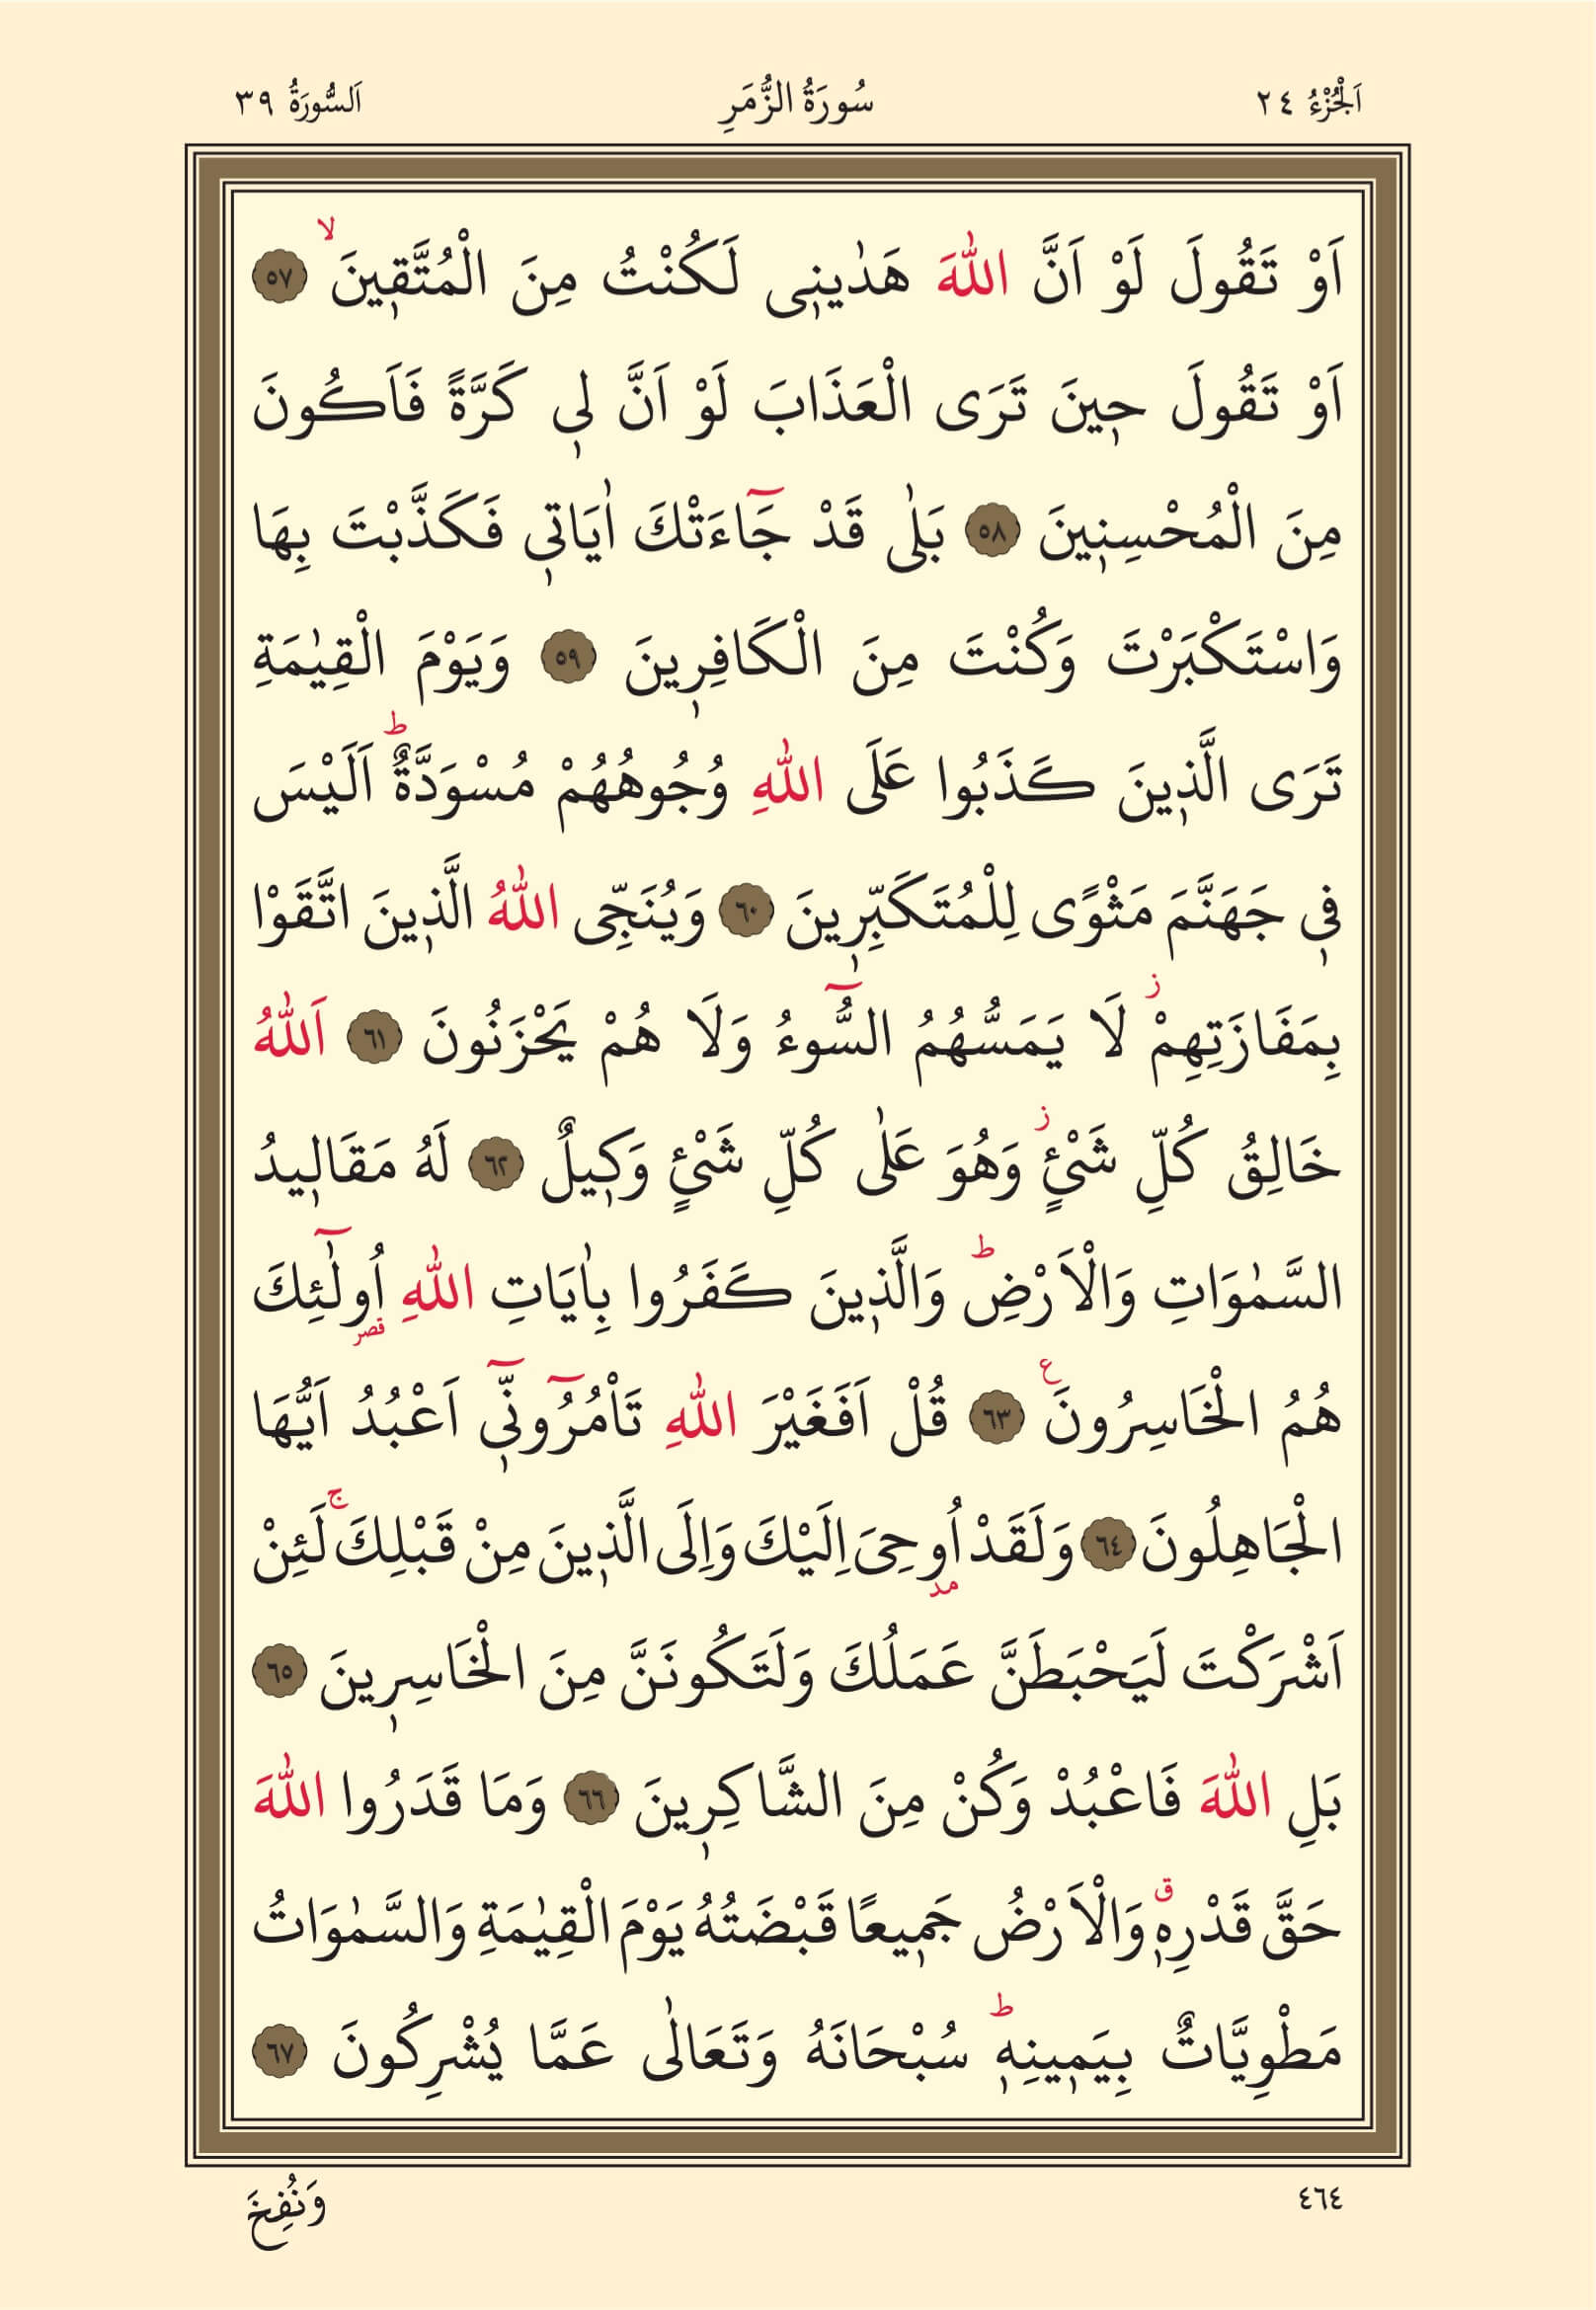 اَلْجُزْءُ ٢٤
سُورَةُ الزُّمَرِ
اَلسُّورَةُ ٣٩
اَوْ تَقُولَ لَوْ اَنَّ اللّٰهَ هَدٰينٖى لَكُنْتُ مِنَ الْمُتَّقٖينَ ۙ ﴿٥٧﴾
اَوْ تَقُولَ حٖينَ تَرَى الْعَذَابَ لَوْ اَنَّ لٖى كَرَّةً فَاَكُونَ
مِنَ الْمُحْسِنٖينَ ﴿٥٨﴾ بَلٰى قَدْ جَٓاءَتْكَ اٰيَاتٖى فَكَذَّبْتَ بِهَا
وَاسْتَكْبَرْتَ وَكُنْتَ مِنَ الْكَافِرٖينَ ﴿٥٩﴾ وَيَوْمَ الْقِيٰمَةِ
تَرَى الَّذٖينَ كَذَبُوا عَلَى اللّٰهِ وُجُوهُهُمْ مُسْوَدَّةٌ ؕ اَلَيْسَ
فٖى جَهَنَّمَ مَثْوًى لِلْمُتَكَبِّرٖينَ ﴿٦٠﴾ وَيُنَجِّى اللّٰهُ الَّذٖينَ اتَّقَوْا
بِمَفَازَتِهِمْ ز لَا يَمَسُّهُمُ السُّٓوءُ وَلَا هُمْ يَحْزَنُونَ ﴿٦١﴾ اَللّٰهُ
خَالِقُ كُلِّ شَىْءٍ ز وَهُوَ عَلٰى كُلِّ شَىْءٍ وَكٖيلٌ ﴿٦٢﴾ لَهُ مَقَالٖيدُ
السَّمٰوَاتِ وَالْاَرْضِ ؕ وَالَّذٖينَ كَفَرُوا بِاٰيَاتِ اللّٰهِ اُولٰٓئِكَ قصر
هُمُ الْخَاسِرُونَ ع ﴿٦٣﴾ قُلْ اَفَغَيْرَ اللّٰهِ تَاْمُرُٓونّٖٓى اَعْبُدُ اَيُّهَا
الْجَاهِلُونَ ﴿٦٤﴾ وَلَقَدْ اُوحِىَ مد اِلَيْكَ وَاِلَى الَّذٖينَ مِنْ قَبْلِكَ ۚ لَئِنْ
اَشْرَكْتَ لَيَحْبَطَنَّ عَمَلُكَ وَلَتَكُونَنَّ مِنَ الْخَاسِرٖينَ ﴿٦٥﴾
بَلِ اللّٰهَ فَاعْبُدْ وَكُنْ مِنَ الشَّاكِرٖينَ ﴿٦٦﴾ وَمَا قَدَرُوا اللّٰهَ
حَقَّ قَدْرِهٖ ق وَالْاَرْضُ جَمٖيعًا قَبْضَتُهُ يَوْمَ الْقِيٰمَةِ وَالسَّمٰوَاتُ
مَطْوِيَّاتٌ بِيَمٖينِهٖ ؕ سُبْحَانَهُ وَتَعَالٰى عَمَّا يُشْرِكُونَ ﴿٦٧﴾
٤٦٤
وَنُفِخَ